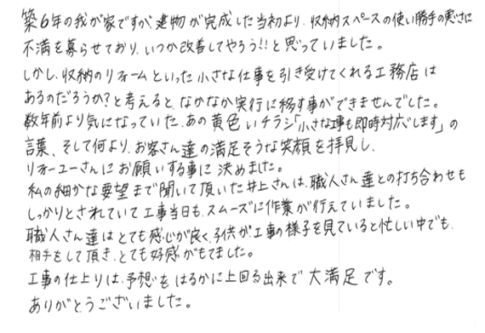 築6年の我が家ですが、建物が完成した当初より、収納スペースの使い勝手の悪さに
不満を募らせており、いつか改善してやろう!!と思っていました。
しかし、収納のリフォームといった小さな仕事を引き受けてくれる工務店は
あるのだろうか?と考えると、なかなか実行に移す事ができませんでした。
数年前より気になっていた、あの黄色いチラシ「小さな工事も即時対応します」の
言葉、そして何より、お客さん達の満足そうな笑顔を拝見し、
リォーユーさんにお願いする事に決めました。
私の細かな要望まで聞いて頂いた井上さんは、職人さん達との打ち合わせも
しっかりとされていて工事当日も、スムーズに作業が行えていました。
職人さん達はとても感じが良く、子供が工事の様子を見ていると忙しい中でも、
相手をして頂き、とても好感がもてました。
工事の仕上りは、予想をはるかに上回る出来で大満足です。
ありがとうございました。